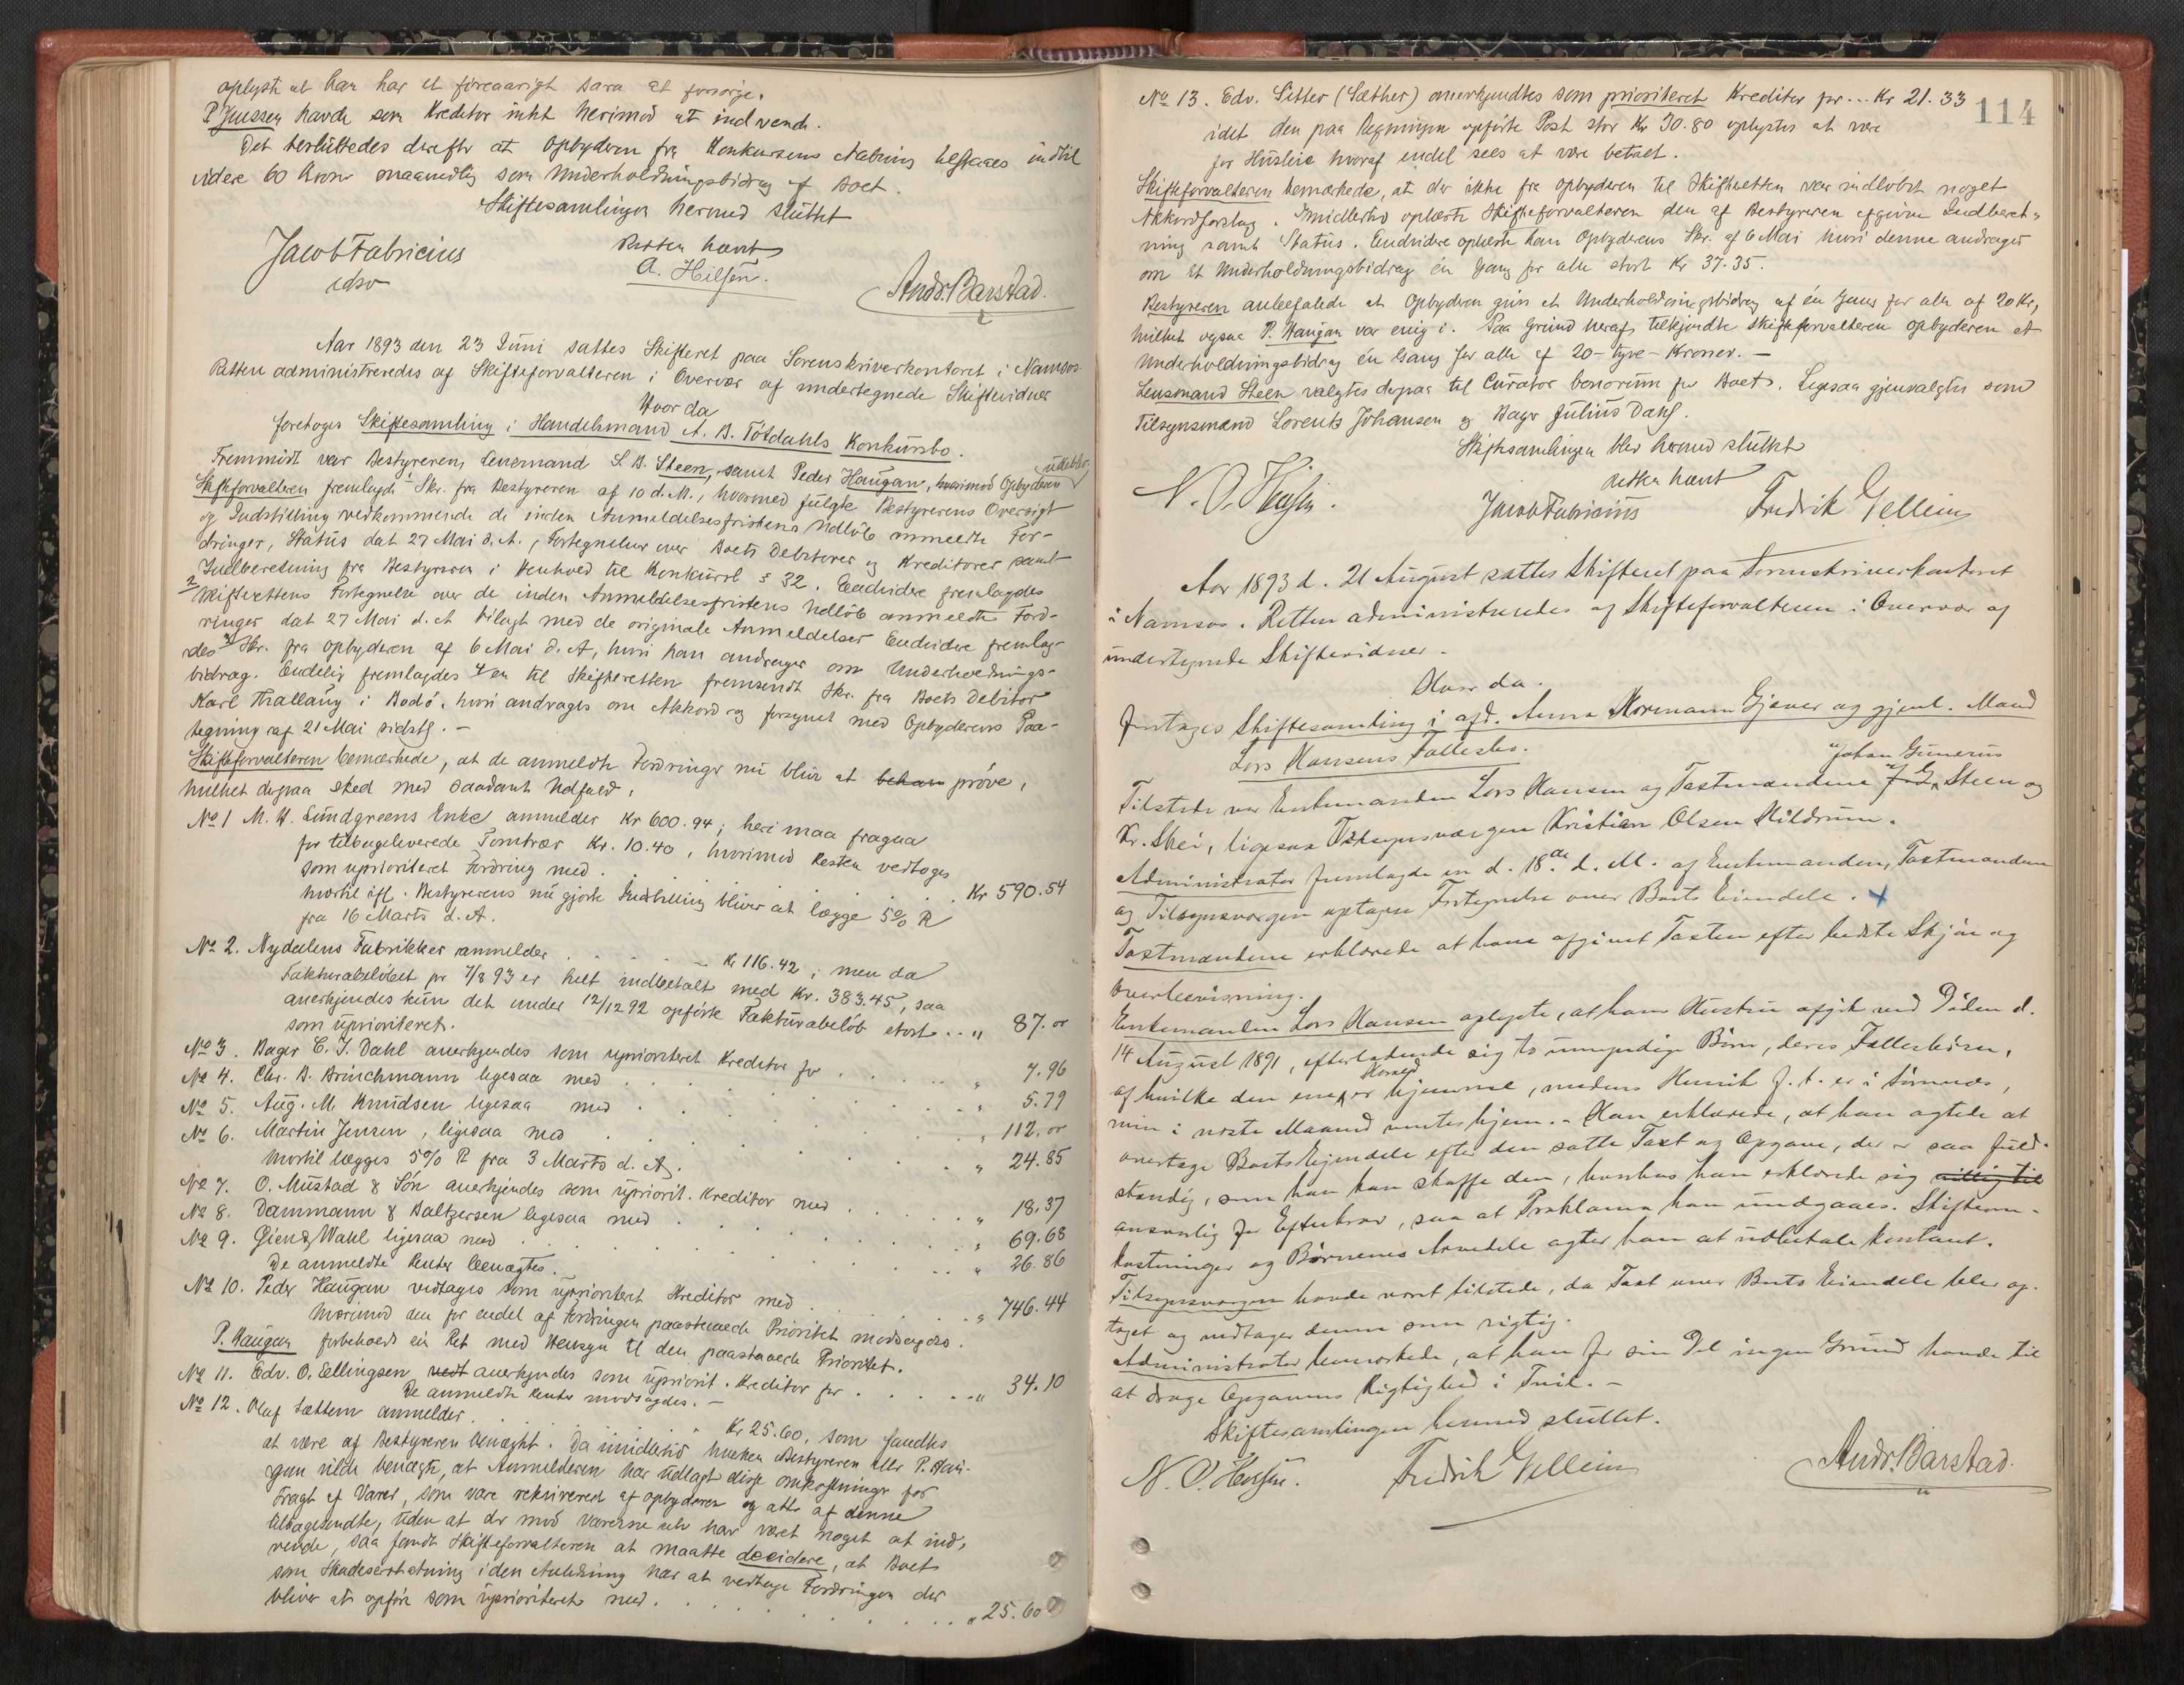 oplyst at han har et foreaarigt barn at forsørge.
P. Jenssen havde som Kreditor intet herimod at indvende.
Det besluttedes derefter at Opbyderen fra Konkursens Aabning tilstaaes indtil
videre 60 Kroner maanedlig som Underholdningsbidrag af Boet.
Skiftesamlingen hermed sluttet
Retten hævet
Jacob Fabricius
cdsv
A. Hilsen.
Andr. Barstad.
Aar 1893 den 23 Juni sattes Skifteret paa Sorenskriverkontoret i Namsos
Retten administreredes af Skifteforvalteren i Overvær af undertegnede Skiftevidner
Hvor da
foretoges Skiftesamling i Handelsmand A. B. Tötdahls Konkursbo.
Fremmødt var Bestyreren, Lensmand S. B. Steen, samt Peder Haugan, hvorimod Opbyderen udeblev,
Skifteforvalteren fremlagde 1 Skr. fra Bestyreren af 10 d. M., hvormed fulgte Bestyrerens Oversigt
og Indstilling vedkommende de inden Anmeldelsesfristens Udløb anmeldte For-
dringer, Status dat 27 Mai d. A., Fortegnelser over Boets Debitorer og Kreditorer samt
Indberetning fra Bestyreren i Henhold til Konkursl § 32. Endvidere fremlagdes
2 Skifterettens Fortegnelse over de inden Anmeldelsesfristens Udløb anmeldte Ford-
ringer dat 27 Mai d. A bilagt med de originale Anmeldelser Endvidere fremlag-
des 3 Skr. fra Opbyderen af 6 Mai d. A, hvori han andrager om Underholdnings-
bidrag. Endelig fremlagdes 4 en til Skifteretten fremsendt Skr. fra Boets Debitor
Karl Thallaug i Bodö, hvori andrages om Akkord og forsynet med Opbyderens Paa-
tegning af 21 Mai sidstl. -
Skifteforvalteren bemærkede, at de anmeldte Fordringer nu bliver at behan prøve,
hvilket derpaa sked med saadant Udfald:
No 1 M. H. Lundgreens Enke anmelder Kr 600.94; heri maa fragaa
for tilbageleverede Tomtræer Kr. 10.40, hvorimod Resten vedtoges
som uprioriteret Fordring med . . . . . Kr 590.54
hvortil ifl. Bestyrerens nu gjorte Indstilling bliver at lægge 5% R
fra 16 Marts d. A.
No 2. Nydalens Fabrikker anmelder . . . . Kr 116.42; men da
Fakturabeløbet pr 7/3 93 er helt indbetalt med Kr. 383.45, saa
anerkjendes kun det under 12/12 92 opførte Fakturabeløb stort . . " 87.00
som uprioriteret.
No 3. Bager C. J. Dahl anerkjendes som uprioriteret Kreditor for . . . " 7.96
No 4. Chr. B. Brinchmann ligesaa med . . . . . " 5.79
No 5. Aug. M. Knudsen ligesaa med . . . . . " 112.00
No 6. Martin Jensen, ligesaa med . . . . . " 24.85
hvortil lægges 5% R fra 3 Marts d. A.
No 7. O. Mustad & Søn anerkjendes som upriorit. Kreditor med . . . " 18.37
No 8. Dammann & Baltzersen ligesaa med . . . . . " 69.68
No 9. Giend Wahl ligesaa med . . . . . " 26.86
De anmeldte Renter benægtes.
No 10. Peder Haugan vedtages som uprioriteret Kreditor med . . . " 746.44
hvorimod den for endel af Fordringen paastaaede Prioritet modsagdes.
P. Haugan forbeholdt sin Ret med Hensyn til den paastaaede Prioritet.
No 11. Edv. O. Ellingsen vedt anerkjendes som upriorit. Kreditor for . . . " 34.10
De anmeldte Renter modsagdes. -
No 12. Oluf Sættem anmelder . . . . Kr 25.60, som fandtes
at være af Bestyreren benægtet. Da imidlertid hverken Bestyreren eller P. Hau-
gan vilde benægte, at Anmelderen har udlagt disse Omkostninger for
Fragt af Varer, som vare rekvirerede af Opbyderen og atter af denne
tilbagesendte, uden at der mod Varerne selv har været noget at ind-
vende, saa fandt Skifteforvalteren at maatte decidere, at Boet
som Skadeserstatning i den Anledning har at vedtage Fordringen der
bliver at opføre som uprioriteret med . . . . . " 25.60
114
No 13. Edv. Sitter (Sæther) anerkjendtes som prioriteret Kreditor for . . . Kr 21.33
idet den paa Regningen opførte Post stor Kr 30.80 oplystes at være
for Husleie hvoraf endel sees at være betalt.
Skifteforvalteren bemærkede, at der ikke fra Opbyderen til Skifteretten var indløbet noget
Akkordforslag. Imidlertid oplæste Skifteforvalteren den af Bestyreren afgivne Indberet-
ning samt Status. Endvidere oplæste han Opbyderens Skr. af 6 Mai hvori denne andrager
om et Underholdningsbidrag én Gang for alle stort Kr 37.35.
Bestyreren anbefalede at Opbyderen gives et Underholdningsbidrag af én Gang for alle af 20 Kr,
hvilket ogsaa P. Haugan var enig i. Paa Grund heraf tilkjendte Skifteforvalteren Opbyderen et
Underholdningsbidrag én Gang for alle af 20 - tyve - Kroner. -
Lensmand Steen valgtes derpaa til Curator bonorum for Boet. Ligesaa gjenvalgtes som
Tilsynsmænd Lorents Johansen og Bager Julius Dahl.
Skiftesamlingen blev hermed sluttet
Retten hævet
N. O. Hilsen.
Jacob Fabricius
Fredrik Gellein
Aar 1893 d. 21 August sattes Skifteret paa Sorenskriverkontoret
i Namsos. Retten administreredes af Skifteforvalteren i Overvær af
undertegnede Skiftevidner.
Hvor da.
foretages Skiftesamling i afd. Anna Normann Gjæver og gjenl. Mand
Lars Hansens Fællesbo.
Tilstede var Enkemanden Lars Hansen og Taxtmændene J. G. Johan Gunerius Steen og
Kr. Skei, ligesaa Tilsynsværgen Kristian Olsen Kildrum.
Administrator fremlagde en d. 18de d. M. af Enkemanden, Taxtmændene
og Tilsynsværgen optagen Fortegnelse over Boets Eiendele.
Taxtmændene erklærede at have afgivet Taxten efter bedste Skjøn og
Overbevisning.
Enkemanden Lars Hansen oplyste, at hans Hustru afgik ved Døden d.
14 August 1891, efterladende sig to umyndige Børn, deres Fællesbørn,
af hvilke den ene er hjemme, medens Henrik J. A. er i Sømnæs,
men i næste Maaned ventes hjem. - Han erklærede, at han agtede at
overtage Boets Ejendele efter den satte Taxt og Opgave, der er saa fuld-
stændig, som han kan skaffe den, hvorhos han erklærede sig villig til
ansvarlig for Efterkrav, saa at Proklama kan undgaaes. Skifteom-
kostninger og Børnenes Arvedele agter han at udbetale kontant.
Tilsynsværgen havde været tilstede, da Taxt over Boets Eiendele blev op-
taget og vedtager denne som rigtig.
Administrator bemærkede, at han for sin Del ingen Grund havde til
at drage Opgavens Rigtighed i Tvil. -
Skiftesamlingen hermed sluttet.
N. O. Hilsen.
Fredrik Gellein
Andr. Barstad.